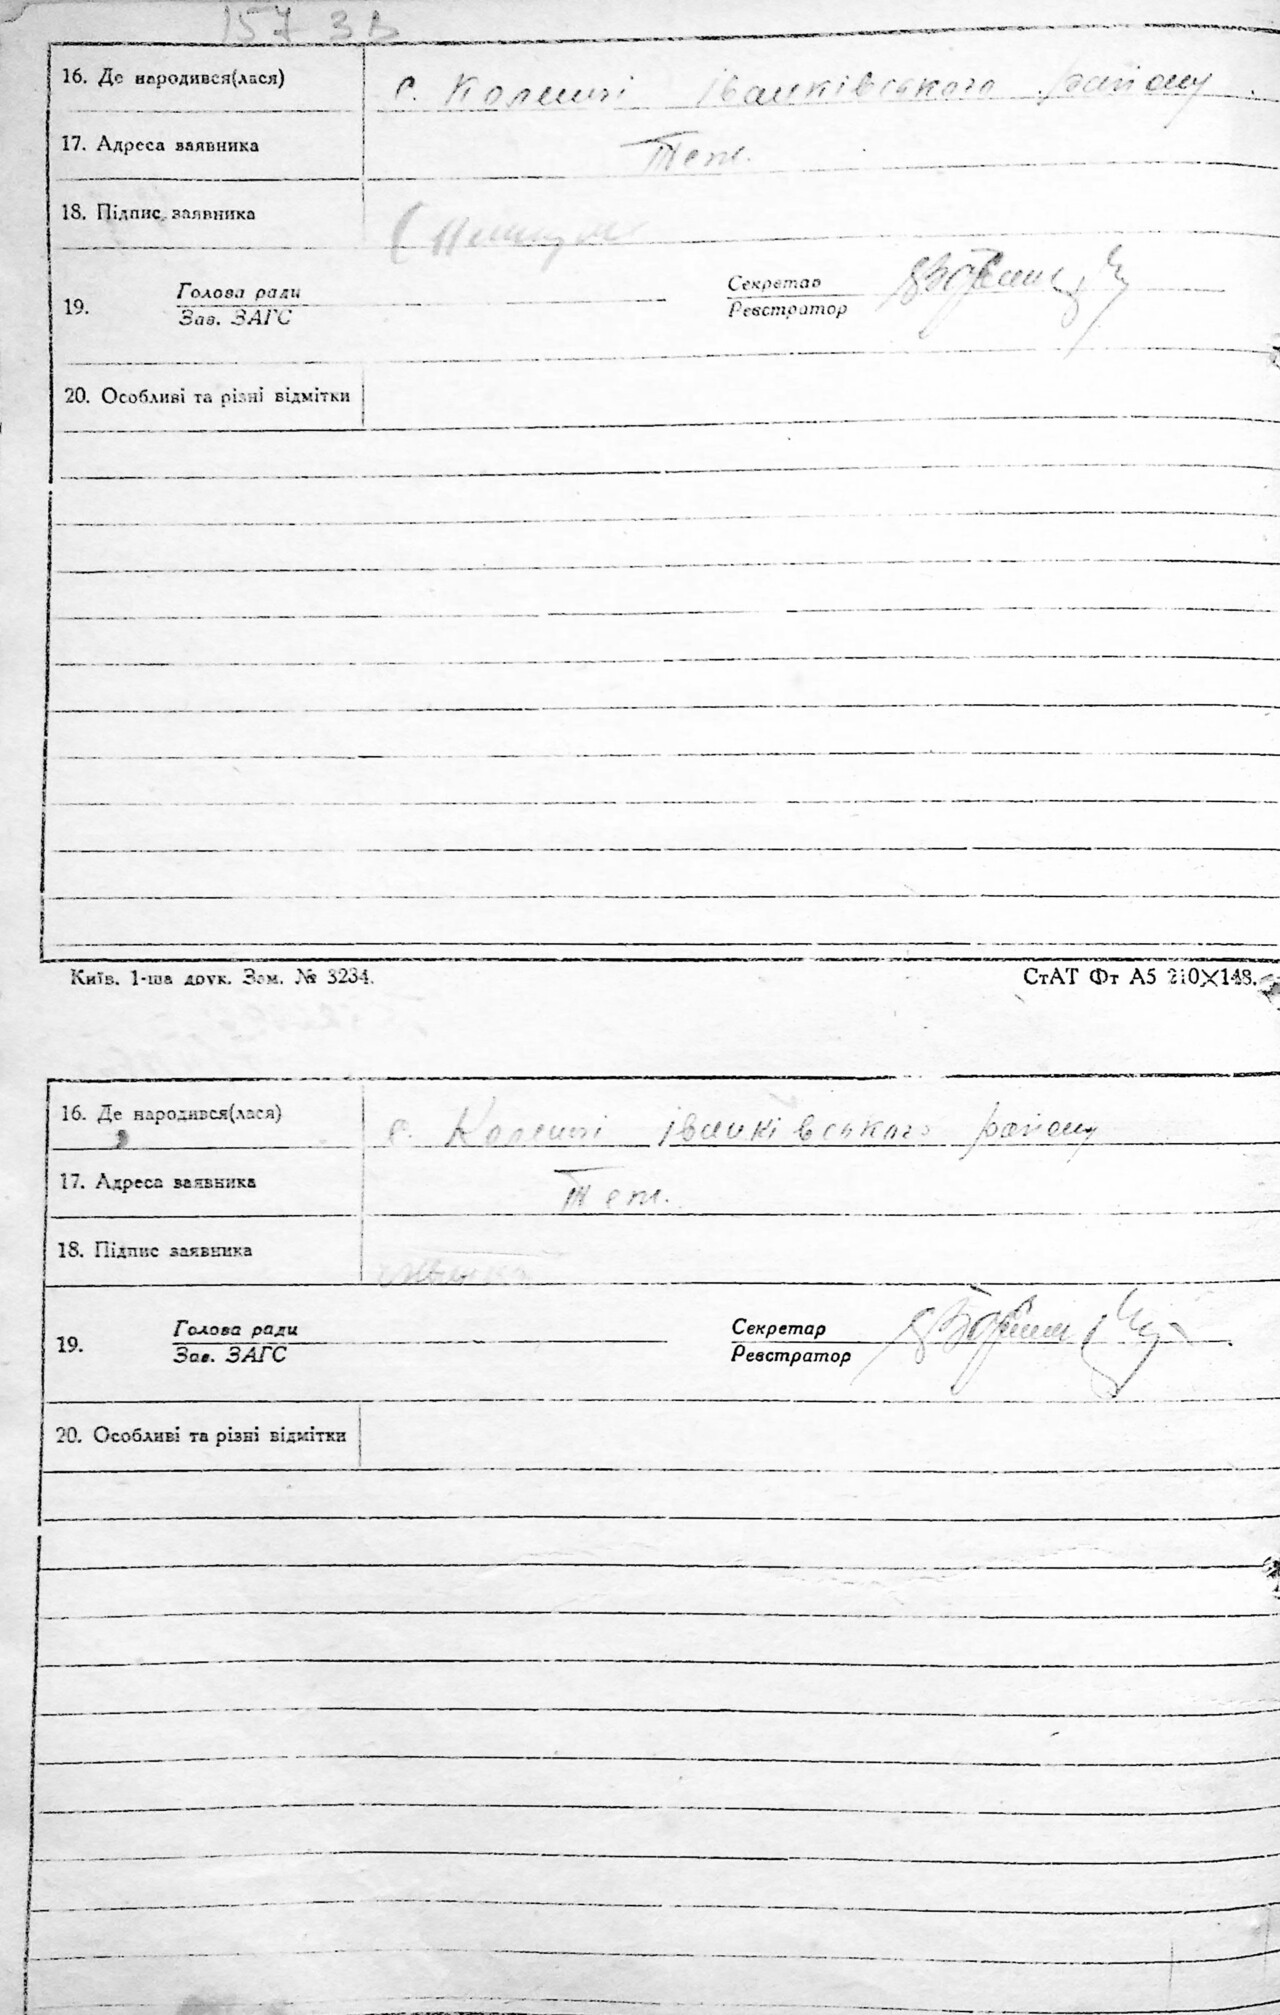 157 зв
16. Де народився(лася) с. Коленці Іванківського району.
17. Адреса заявника Теж.
18. Підпис заявника
19. Голова ради Секретар
Зав. ЗАГС Реєстратор
20. Особливі та різні відмітки
Київ. 1-ша друк. Зам. № 3234. СтАТ Фт А5 210×148.
16. Де народився(лася) с. Коленці Іванківського району
17. Адреса заявника Теж.
18. Підпис заявника
19. Голова ради Секретар
Зав. ЗАГС Реєстратор
20. Особливі та різні відмітки